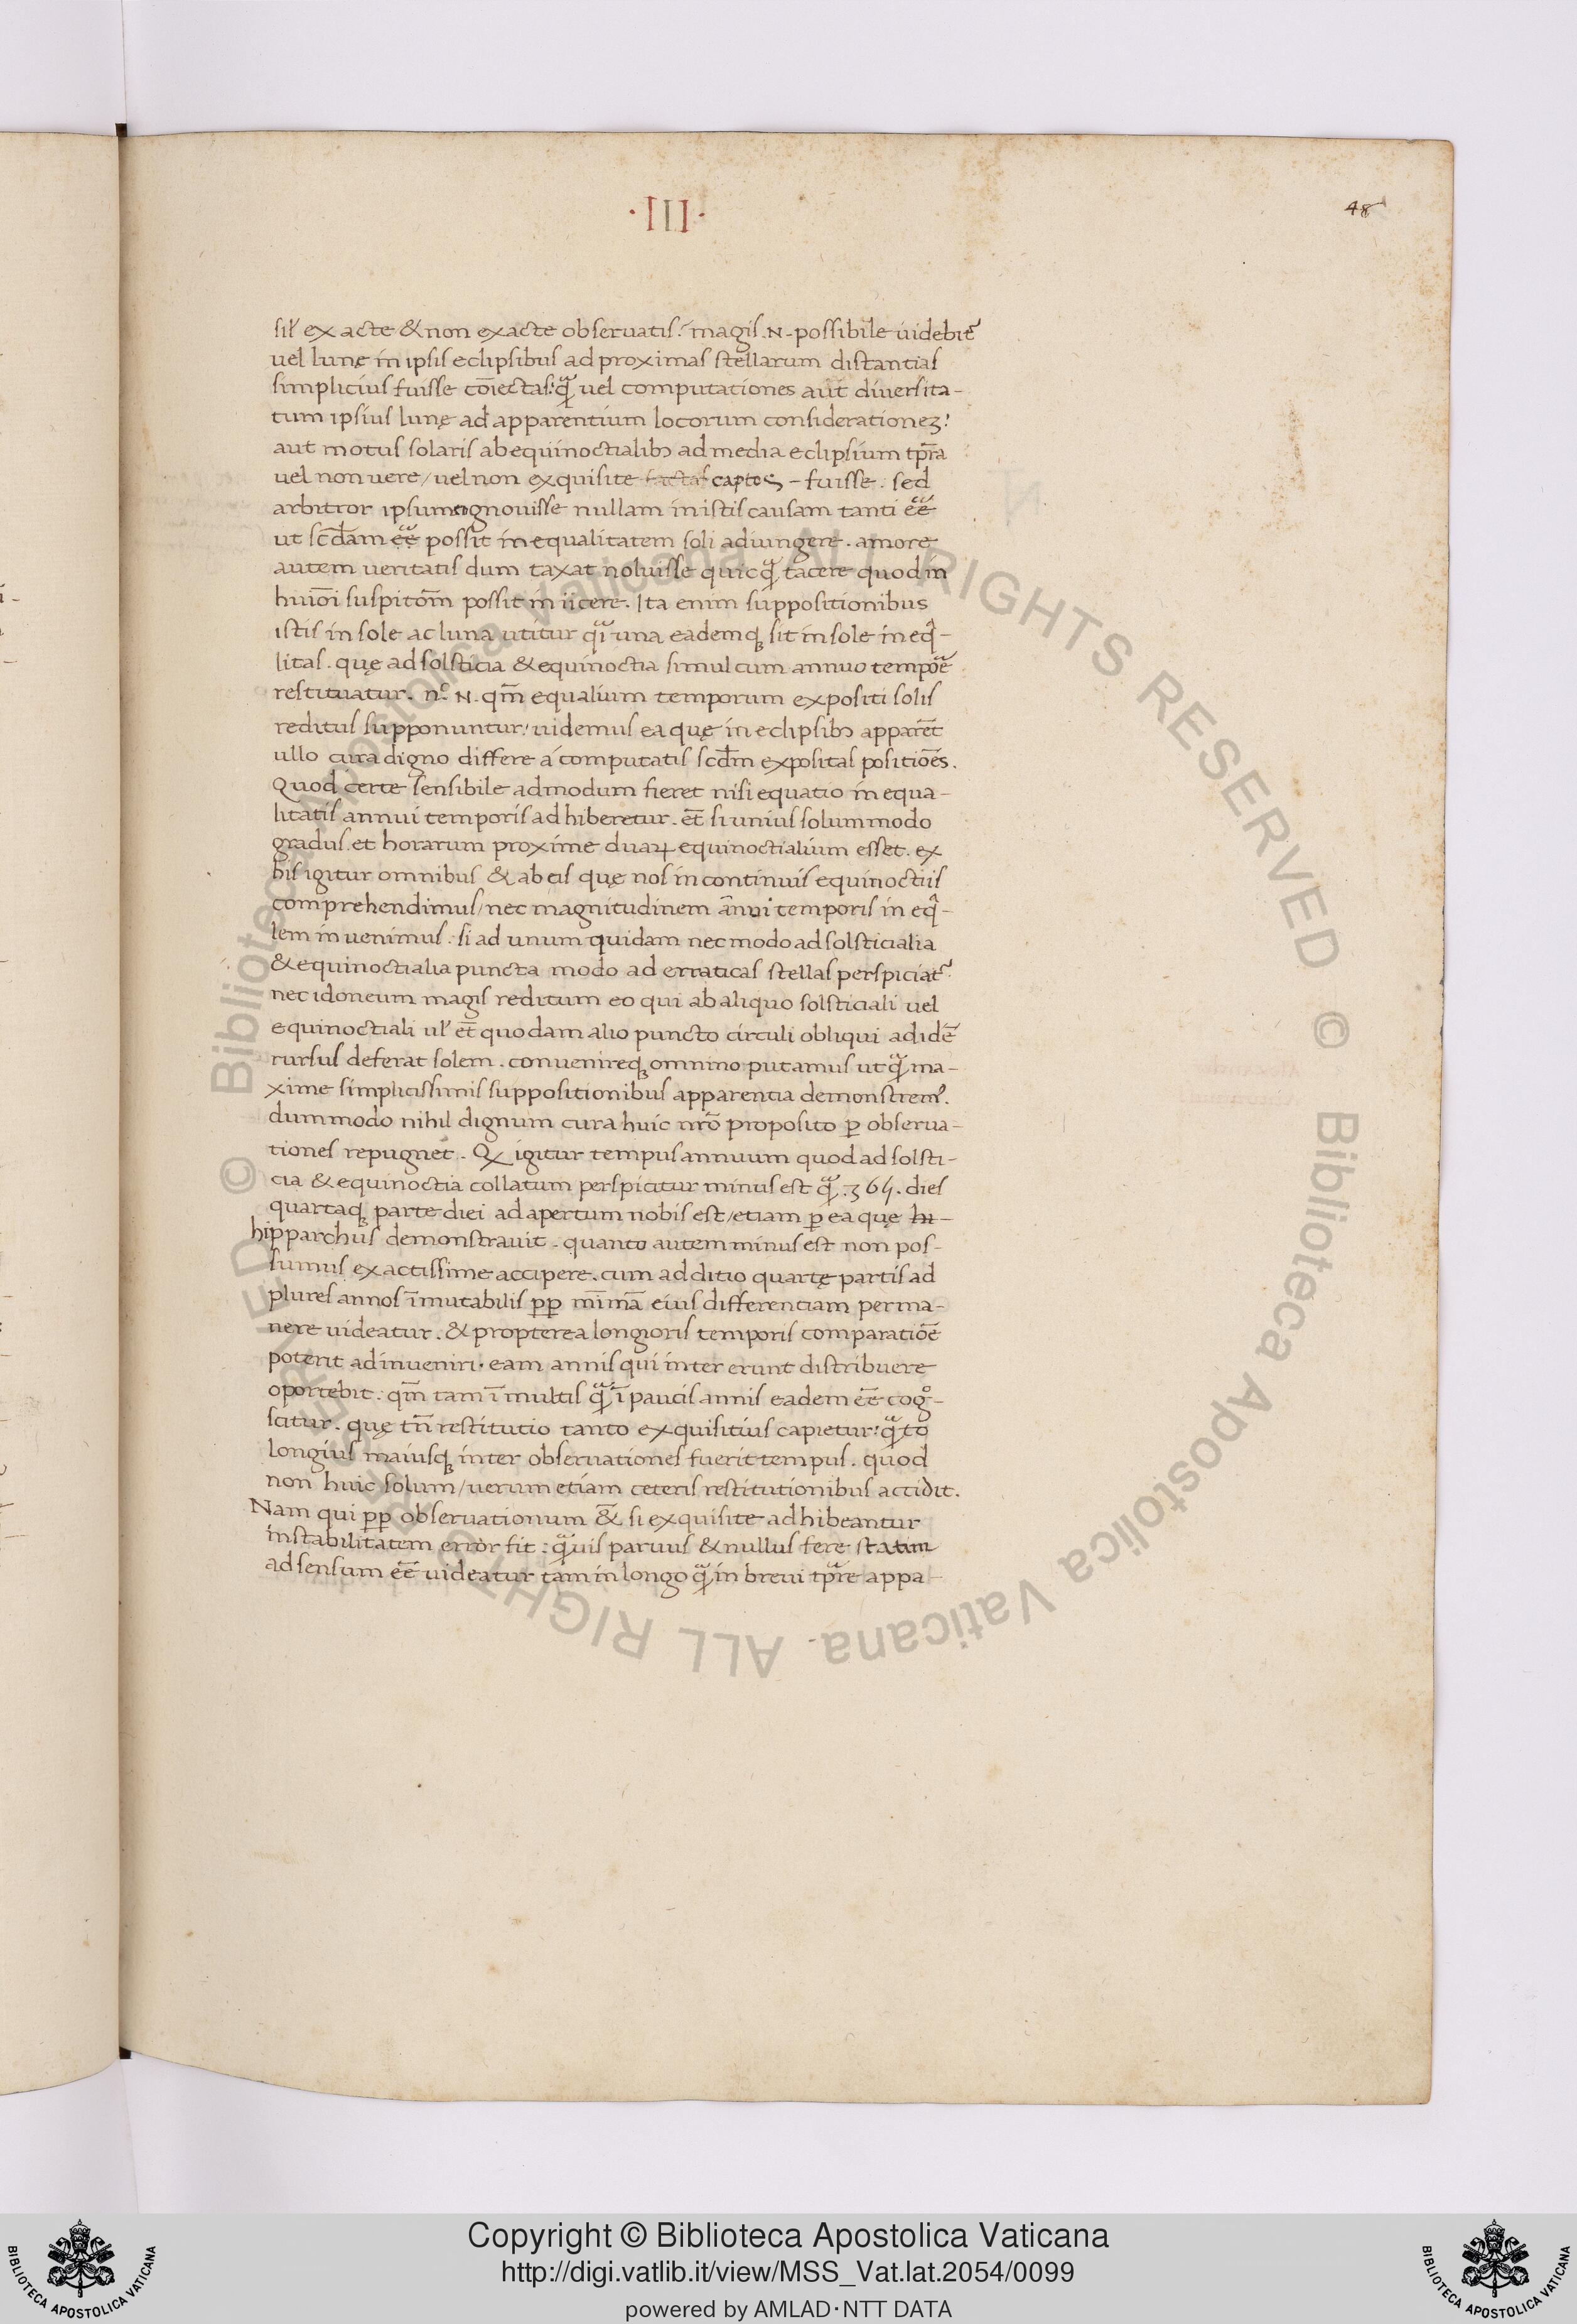 ·III·
48
sil' ex acte & non exacte obseruatis: magis .N. possibile uidebit᷑
uel lunę in ipsis eclipsibus ad proximas stellarum distantias
simplicius fuisse cōiectas: qᷓ uel computationes aut diuersita-
tum ipsius lunę ad apparentium locorum considerationeʒ:
aut motus solaris ab equinoctialibꝫ ad media eclipsium tp̄ra
uel non uere / uel non exquisite captos - fuisse. sed
arbitror ipsum agnouisse nullam in istis causam tanti eē
ut scd̄am eē possit inequalitatem soli adiungere. amore
autem ueritatis dum taxat noluisse quicqᷓ tacere quod in
huiōi suspitōm possit in iicere. Ita enim suppositionibus
istis in sole ac luna utitur qᷓi una eademqꝫ sit in sole in eqͣ-
litas. quę ad solsticia & equinoctia simul cum annuo tempoē
restituatur. nᵒ .N. qm̄ equalium temporum expositi solis
reditus supponuntur: uidemus ea quę in eclipsibꝫ apparēt
ullo cura digno differe á computatis scd̄m expositas positiōēs.
Quod certe sensibile admodum fieret nisi equatio in equa-
litatis annui temporis ad hiberetur. et̄ si unius solummodo
gradus et horarum proxime duaꝝ equinoctialium esset. ex
his igitur omnibus & ab eis quę nos in continuis equinoctiis
comprehendimus / nec magnitudinem annui temporis in eqͣ-
lem in uenimus. si ad unum quidam nec modo ad solsticialia
& equinoctialia puncta modo ad erraticas stellas perspiciat᷑
nec idoneum magis reditum eo qui ab aliquo solsticiali uel
equinoctiali ul' et̄ quodam alio puncto circuli obliqui ad idē
rursus deferat solem. conuenireqꝫ omnino putamus ut qᷓ ma-
xime simplicissimis suppositionibus apparentia demonstremꝰ.
dummodo nihil dignum cura huic nr̄o proposito ꝑ obserua-
tiones repugnet. Qꝫ igitur tempus annuum quod ad solsti-
cia & equinoctia collatum perspicitur minus est qᷓ .365. dies
quartaqꝫ parte diei ad apertum nobis est / etiam ꝑ ea quę hi-
hipparchus demonstrauit. quanto autem minus est non pos-
sumus exactissime accipere. cum ad ditio quartę partis ad
plures annos īmutabilis ꝑꝑ mīmā eius differentiam perma-
nere uideatur. & propterea longioris temporis comparatiōē
poterit adinueniri. eam annis qui inter erunt distribuere
oportebit: qm̄ tam ī multis qᷓ ī paucis annis eadem eē cogᵒ-
scitur. quę tn̄ restitutio tanto exquisitius capietur: qᷓto
longius maiusqꝫ inter obseruationes fuerit tempus. quod
non huic solum / uerum etiam ceteris restitutionibus accidit.
Nam qui ꝑꝑ obseruationum &̄ si exquisite ad hibeantur
instabilitatem error fit: qᷓuis paruus & nullus fere statim
ad sensum eē uideatur tam in longo qᷓ in breui tp̄re appa-
Copyright © Biblioteca Apostolica Vaticana
http://digi.vatlib.it/view/MSS_Vat.lat.2054/0099
powered by AMLAD·NTT DATA